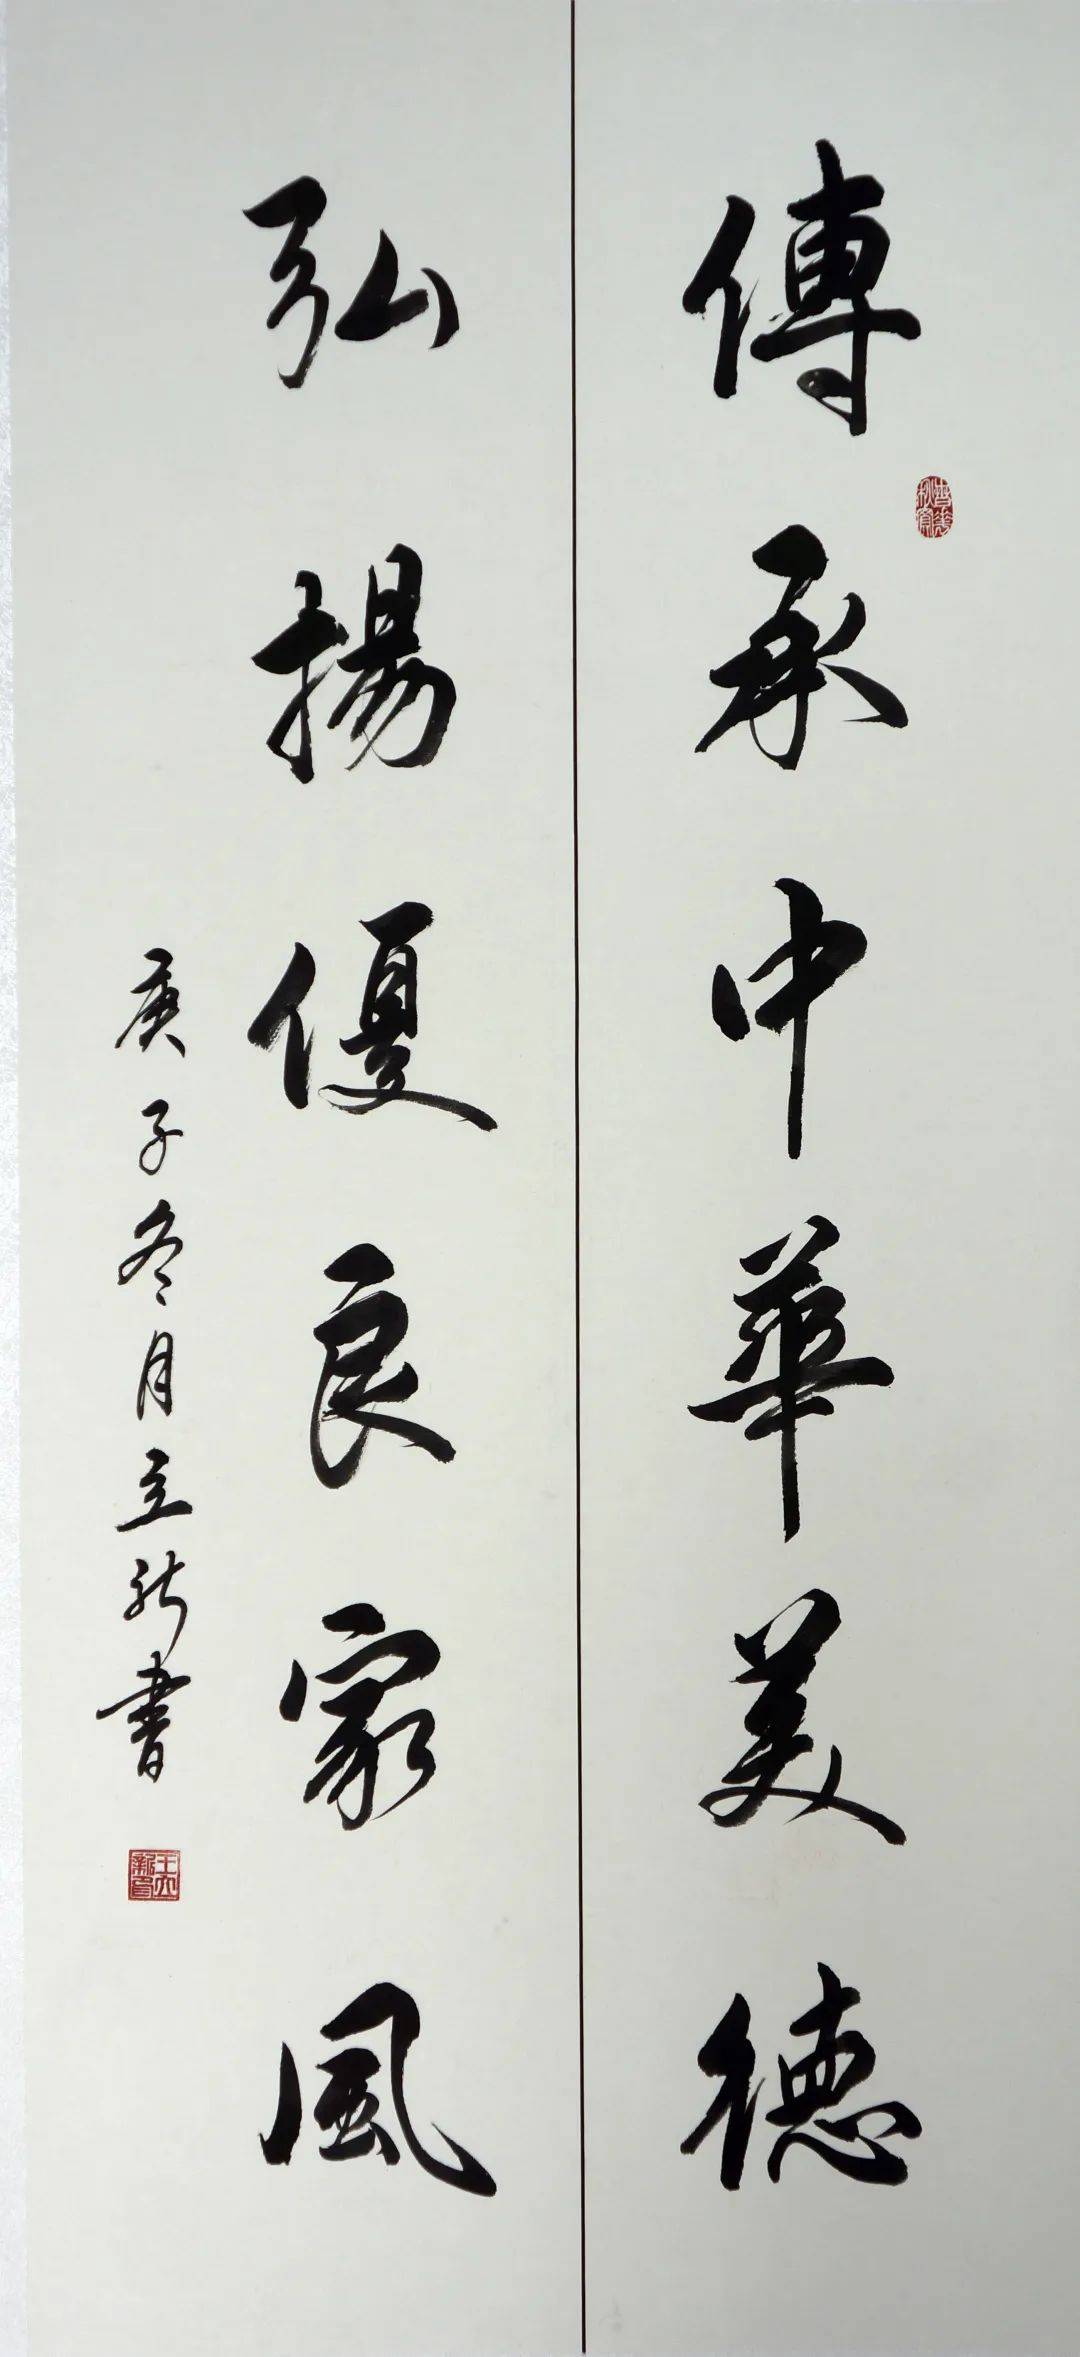 傳承中華美德
弘揚優良家風
庚子冬月立新書
王立新印